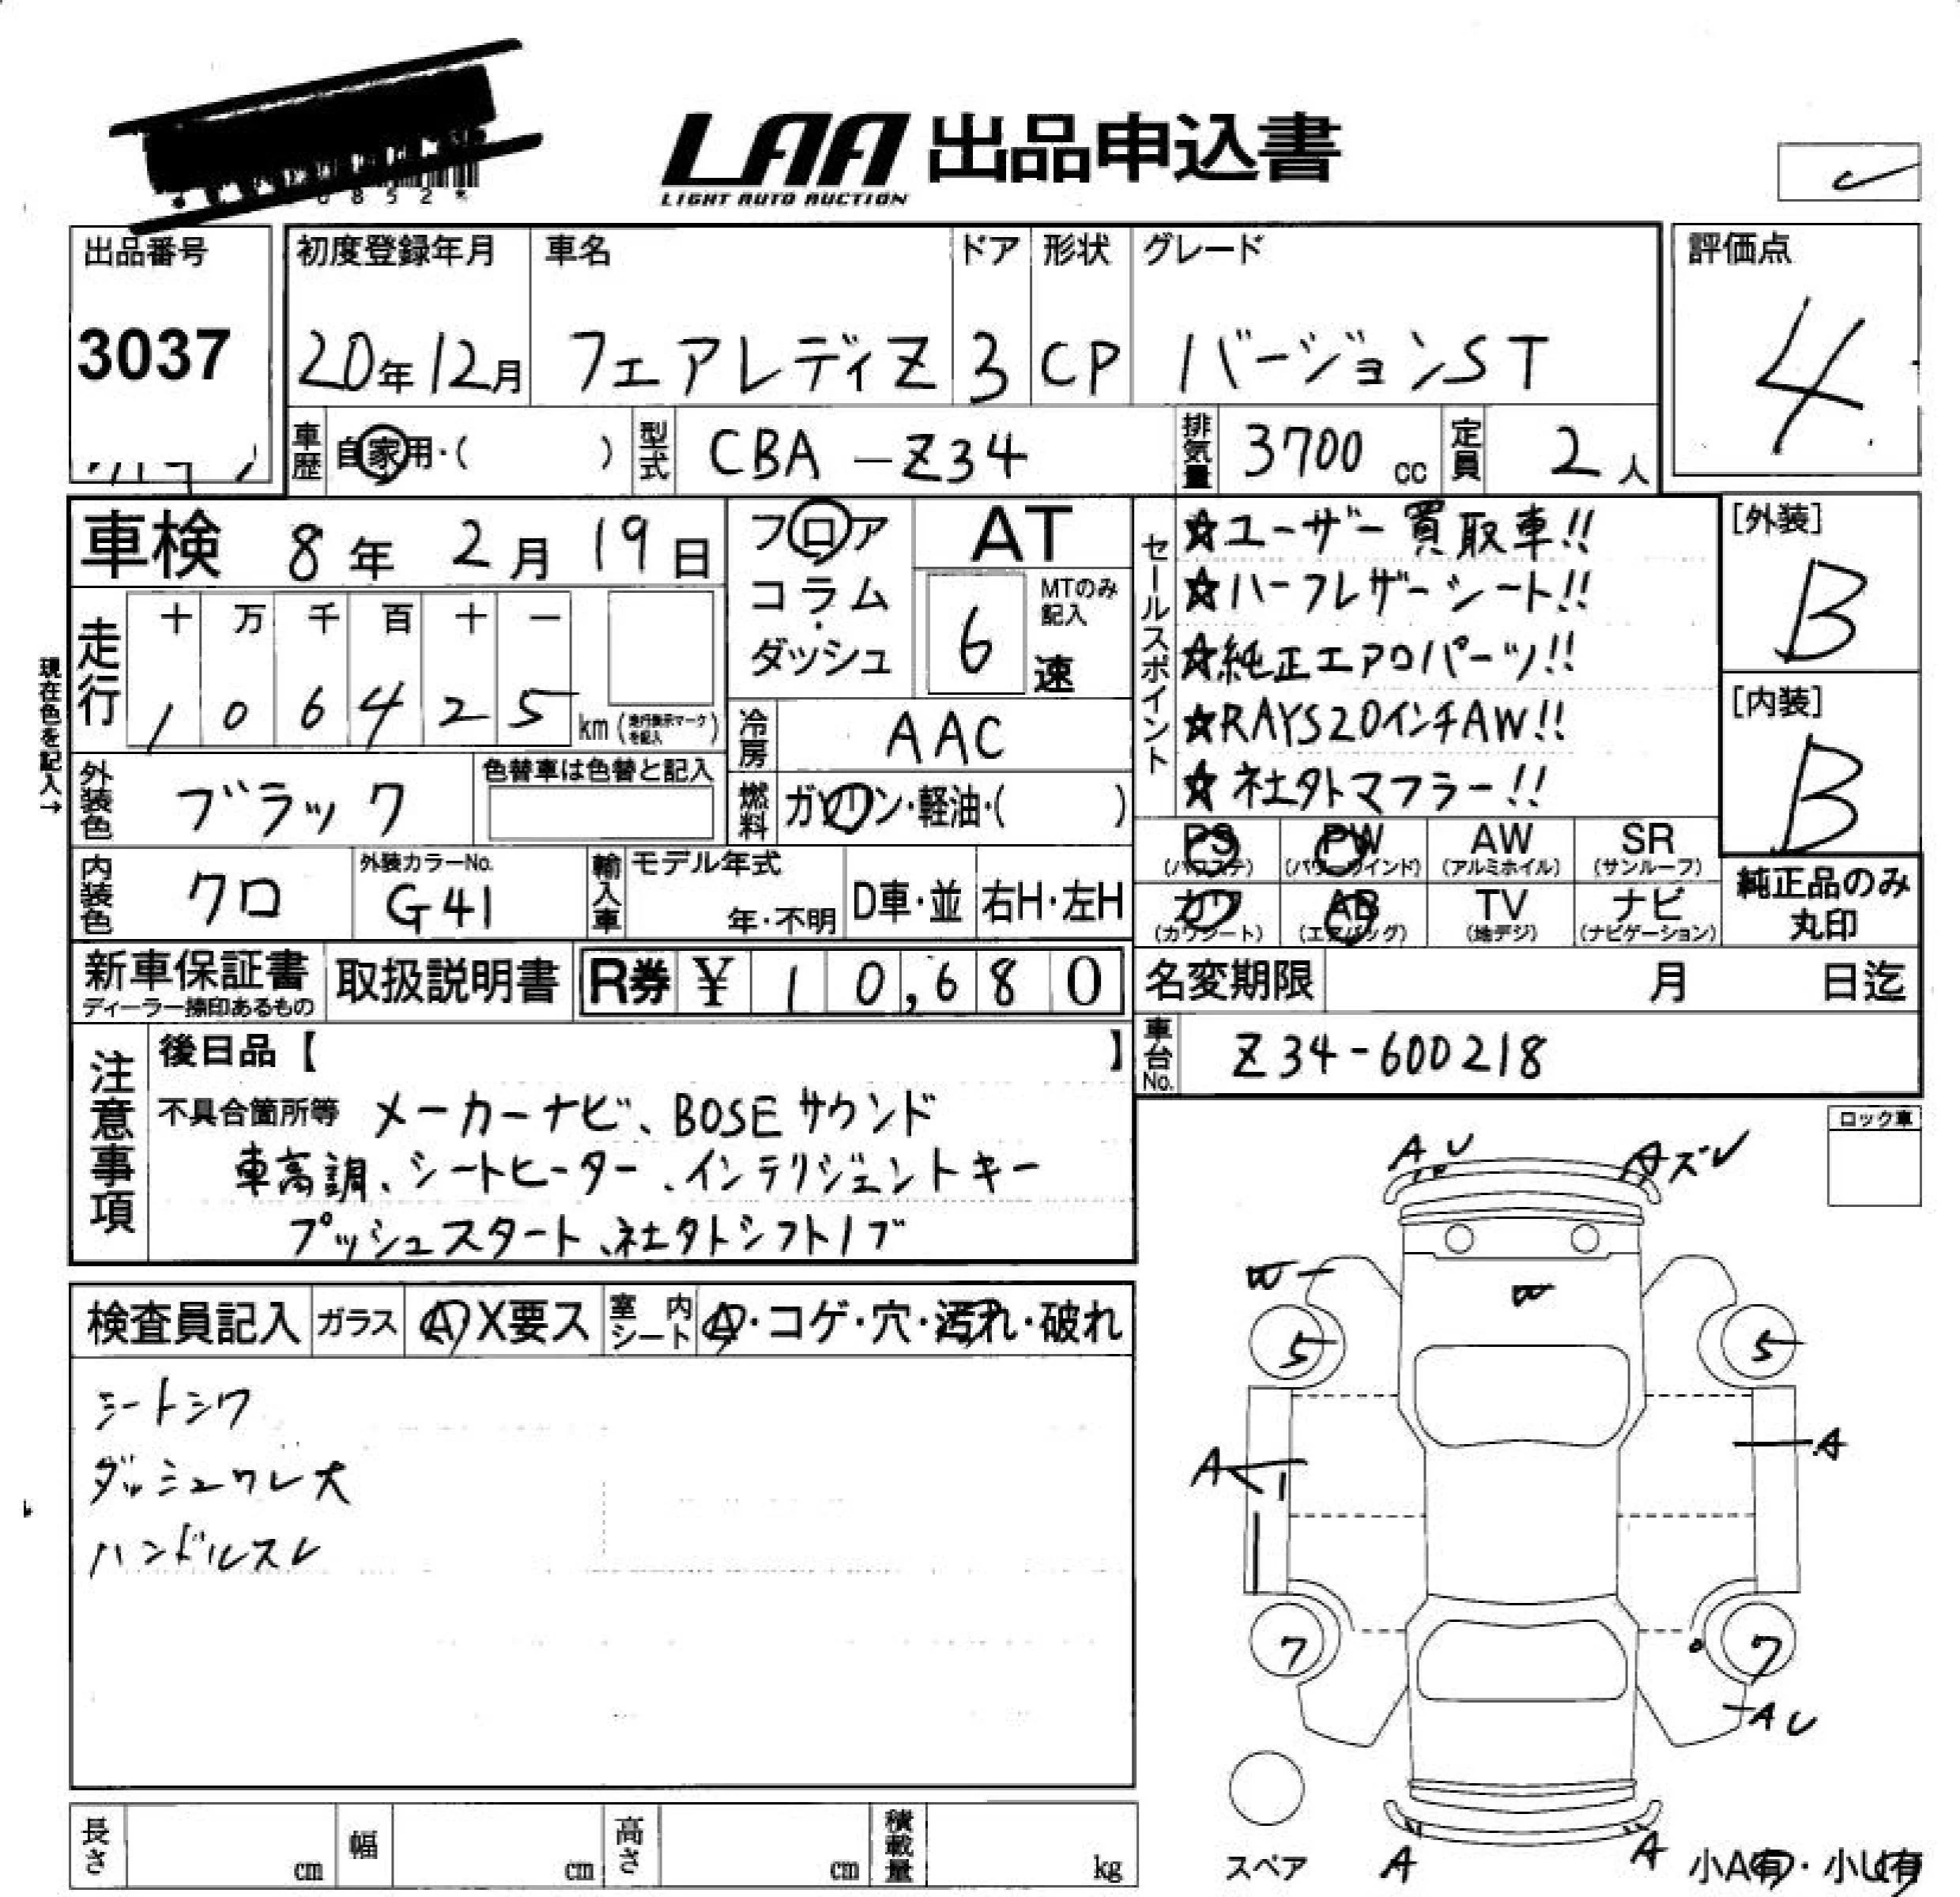 0852*
LAA 出品申込書
LIGHT AUTO AUCTION
出品番号 初度登録年月 車名 ドア 形状 グレード 評価点
3037 20年12月 フェアレディZ 3 CP バージョンST 4
車歴 自家用・( ) 型式 CBA-Z34 排気量 3700 cc 定員 2人
車検 8年 2月 19日 フロア AT
コラム・ダッシュ 6 MTのみ記入 速
走行 十 万 千 百 十 一
1 0 6 4 2 5 km (走行表示マークを記入)
現在色を記入→
冷房 AAC
外装色 ブラック 色替車は色替と記入 燃料 ガソリン・軽油・( )
セールスポイント
☆ユーザー買取車!!
☆ハーフレザーシート!!
☆純正エアロパーツ!!
☆RAYS20インチAW!!
☆社外マフラー!!
[外装] B
[内装] B
PS (パワステ) PW (パワーウインド) AW (アルミホイル) SR (サンルーフ)
カワ (カワシート) AB (エアバッグ) TV (地デジ) ナビ (ナビゲーション)
純正品のみ丸印
内装色 クロ 外装カラーNo. G41 輸入車 モデル年式 年・不明 D車・並 右H・左H
新車保証書 ディーラー捺印あるもの 取扱説明書 R券 ¥ 10,680 名変期限 月 日迄
車台No. Z34-600218
注意事項
後日品【 】
不具合箇所等 メーカーナビ、BOSEサウンド
車高調、シートヒーター、インテリジェントキー
プッシュスタート、社外シフトノブ
ロック車
検査員記入 ガラス A X要ス 室内シート A・コゲ・穴・汚れ・破れ
シートシワ
ダッシュワレ大
ハンドルスレ
A U Aズレ
W W
5 5
A 1 A
7 7
A U
スペア A A 小A有・小U有
長さ cm 幅 cm 高さ cm 積載量 kg